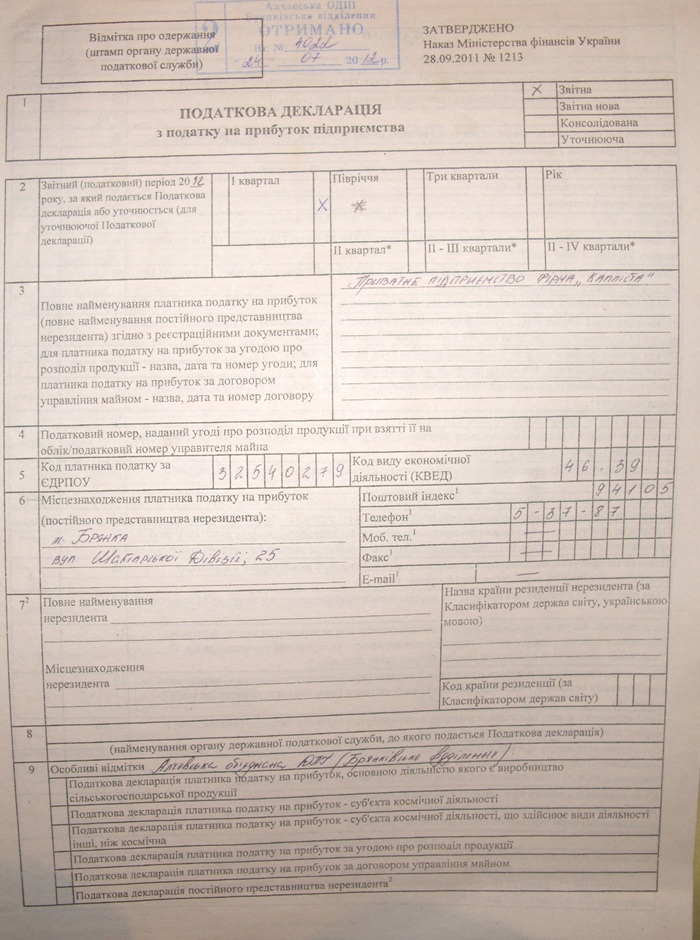 Алчевська ОДПІ
Брянківське відділення
ОТРИМАНО
Вх. № 4022
24 07 2012р.
Відмітка про одержання
(штамп органу державної
податкової служби)
ЗАТВЕРДЖЕНО
Наказ Міністерства фінансів України
28.09.2011 № 1213
1
ПОДАТКОВА ДЕКЛАРАЦІЯ
з податку на прибуток підприємства
X Звітна
Звітна нова
Консолідована
Уточнююча
2
Звітний (податковий) період 2012
року, за який подається Податкова
декларація або уточнюється (для
уточнюючої Податкової
декларації)
І квартал
X Півріччя
Три квартали
Рік
ІІ квартал*
ІІ - ІІІ квартали*
ІІ - ІV квартали*
3
Повне найменування платника податку на прибуток
(повне найменування постійного представництва
нерезидента) згідно з реєстраційними документами;
для платника податку на прибуток за угодою про
розподіл продукції - назва, дата та номер угоди; для
платника податку на прибуток за договором
управління майном - назва, дата та номер договору
Приватне підприємство фірма „Капліста"
4
Податковий номер, наданий угоді про розподіл продукції при взятті її на
облік/податковий номер управителя майна
5
Код платника податку за
ЄДРПОУ
32540279
Код виду економічної
діяльності (КВЕД)
46.39
6
Місцезнаходження платника податку на прибуток
(постійного представництва нерезидента):
м. Брянка
вул. Шахтарської Дивізії, 25
Поштовий індекс¹ 94105
Телефон¹ 5-37-87
Моб. тел.¹ —
Факс¹ —
E-mail¹ —
7²
Повне найменування
нерезидента
Місцезнаходження
нерезидента
Назва країни резиденції нерезидента (за
Класифікатором держав світу, українською
мовою)
Код країни резиденції (за
Класифікатором держав світу)
8
(найменування органу державної податкової служби, до якого подається Податкова декларація)
Алчевська об'єднана ДПІ (Брянківське відділення)
9
Особливі відмітки
Податкова декларація платника податку на прибуток, основною діяльністю якого є виробництво
сільськогосподарської продукції
Податкова декларація платника податку на прибуток - суб'єкта космічної діяльності
Податкова декларація платника податку на прибуток - суб'єкта космічної діяльності, що здійснює види діяльності
інші, ніж космічна
Податкова декларація платника податку на прибуток за угодою про розподіл продукції
Податкова декларація платника податку на прибуток за договором управління майном
Податкова декларація постійного представництва нерезидента²